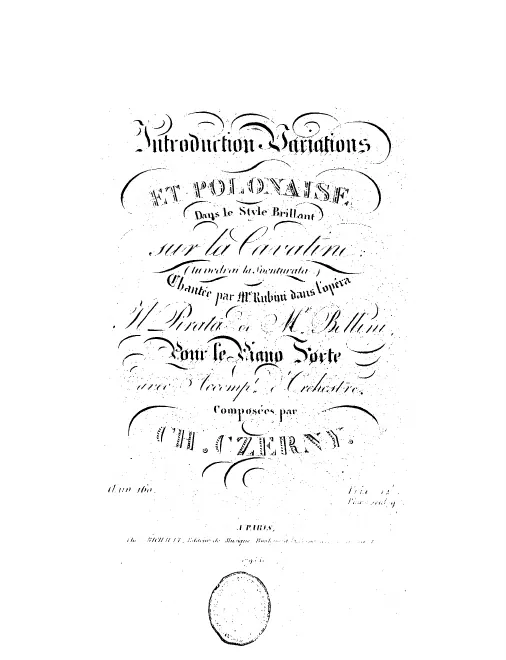 Introduction Variations
ET POLONAISE
Dans le Style Brillant
sur la Cavatine:
(tu vedrai la Sventurata)
Chantée par Mr. Rubini dans l'opéra
Il Pirata de Mr. Bellini,
Pour le Piano Forte
avec Accompt. d'Orchestre,
Composées par
CH. CZERNY.
Œuv 160.
Prix 12
Piano seul 9
A PARIS,
chez RICHAULT, Editeur de Musique